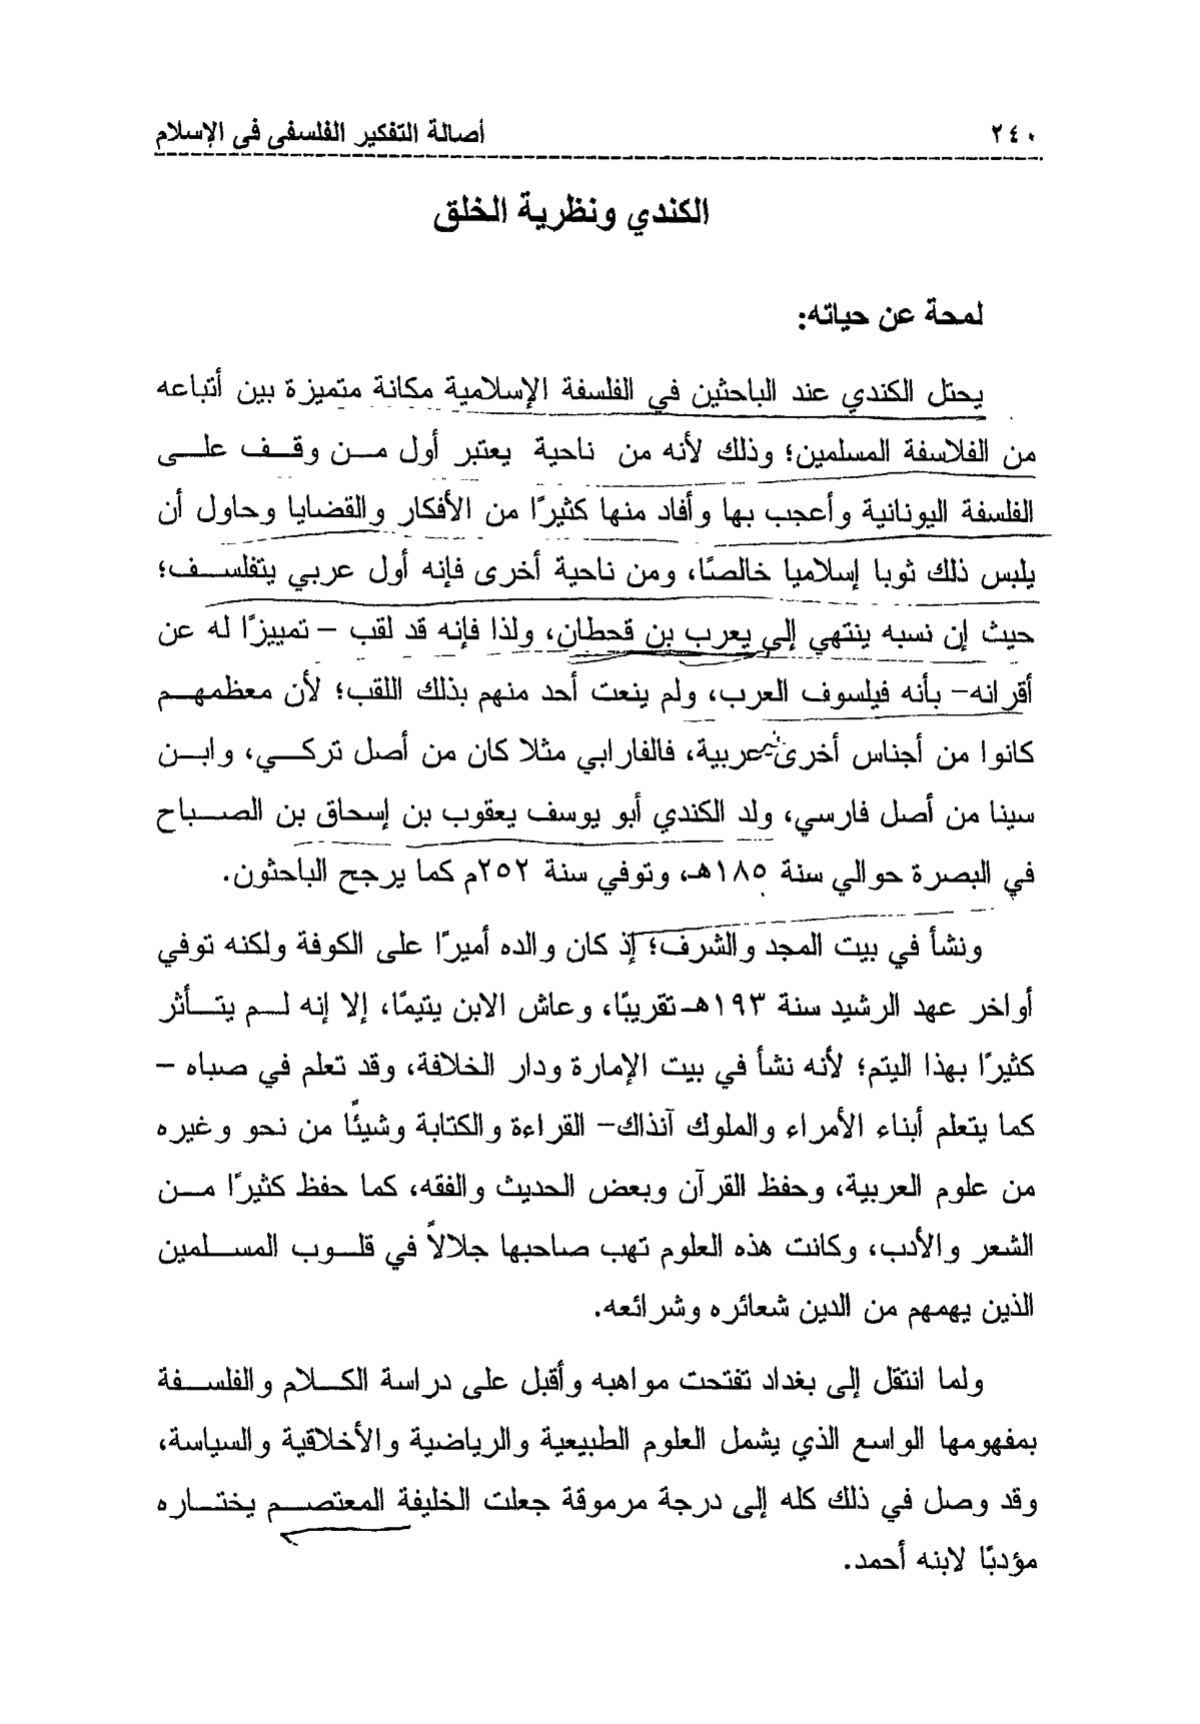 ٢٤٠
أصالة التفكير الفلسفى فى الإسلام
الكندي ونظرية الخلق
لمحة عن حياته:
يحتل الكندي عند الباحثين في الفلسفة الإسلامية مكانة متميزة بين أتباعه
من الفلاسفة المسلمين؛ وذلك لأنه من ناحية يعتبر أول مـن وقـف علـى
الفلسفة اليونانية وأعجب بها وأفاد منها كثيرًا من الأفكار والقضايا وحاول أن
يلبس ذلك ثوبا إسلاميا خالصًا، ومن ناحية أخرى فإنه أول عربي يتفلسـف؛
حيث إن نسبه ينتهي إلى يعرب بن قحطان، ولذا فإنه قد لقب – تمييزًا له عن
أقرانه– بأنه فيلسوف العرب، ولم ينعت أحد منهم بذلك اللقب؛ لأن معظمهـم
كانوا من أجناس أخرى غير عربية، فالفارابي مثلا كان من أصل تركـي، وابـن
سينا من أصل فارسي، ولد الكندي أبو يوسف يعقوب بن إسحاق بن الصـباح
في البصرة حوالي سنة ١٨٥هـ، وتوفي سنة ٢٥٢م كما يرجح الباحثون.
ونشأ في بيت المجد والشرف؛ إذ كان والده أميرًا على الكوفة ولكنه توفي
أواخر عهد الرشيد سنة ١٩٣هـ تقريبًا، وعاش الابن يتيمًا، إلا إنه لـم يتـأثر
كثيرًا بهذا اليتم؛ لأنه نشأ في بيت الإمارة ودار الخلافة، وقد تعلم في صباه –
كما يتعلم أبناء الأمراء والملوك آنذاك– القراءة والكتابة وشيئًا من نحو وغيره
من علوم العربية، وحفظ القرآن وبعض الحديث والفقه، كما حفظ كثيرًا مـن
الشعر والأدب، وكانت هذه العلوم تهب صاحبها جلالاً في قلـوب المسـلمين
الذين يهمهم من الدين شعائره وشرائعه.
ولما انتقل إلى بغداد تفتحت مواهبه وأقبل على دراسة الكـلام والفلسـفة
بمفهومها الواسع الذي يشمل العلوم الطبيعية والرياضية والأخلاقية والسياسة،
وقد وصل في ذلك كله إلى درجة مرموقة جعلت الخليفة المعتصـم يختـاره
مؤدبًا لابنه أحمد.